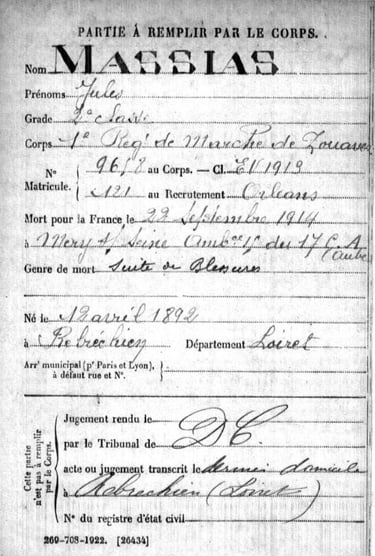 PARTIE À REMPLIR PAR LE CORPS.
Nom MASSIAS
Prénoms Jules
Grade 2e Classe
Corps 1e Regt de Marche de Zouaves
N° 9678 au Corps. — Cl. EV 1913
Matricule. 2121 au Recrutement Orléans
Mort pour la France le 22 Septembre 1914
à Mery s/ Seine Ambce du 17 C.A
(Aube)
Genre de mort Suite de Blessures
Né le 12 avril 1892
à Rebréchien Département Loiret
Arrt municipal (pr Paris et Lyon),
à défaut rue et N°.
Cette partie
n'est pas à remplir
par le Corps.
Jugement rendu le
par le Tribunal de DC.
acte ou jugement transcrit le dernier domicile
à Rebréchien (Loiret)
N° du registre d'état civil
269-708-1922. [26434]